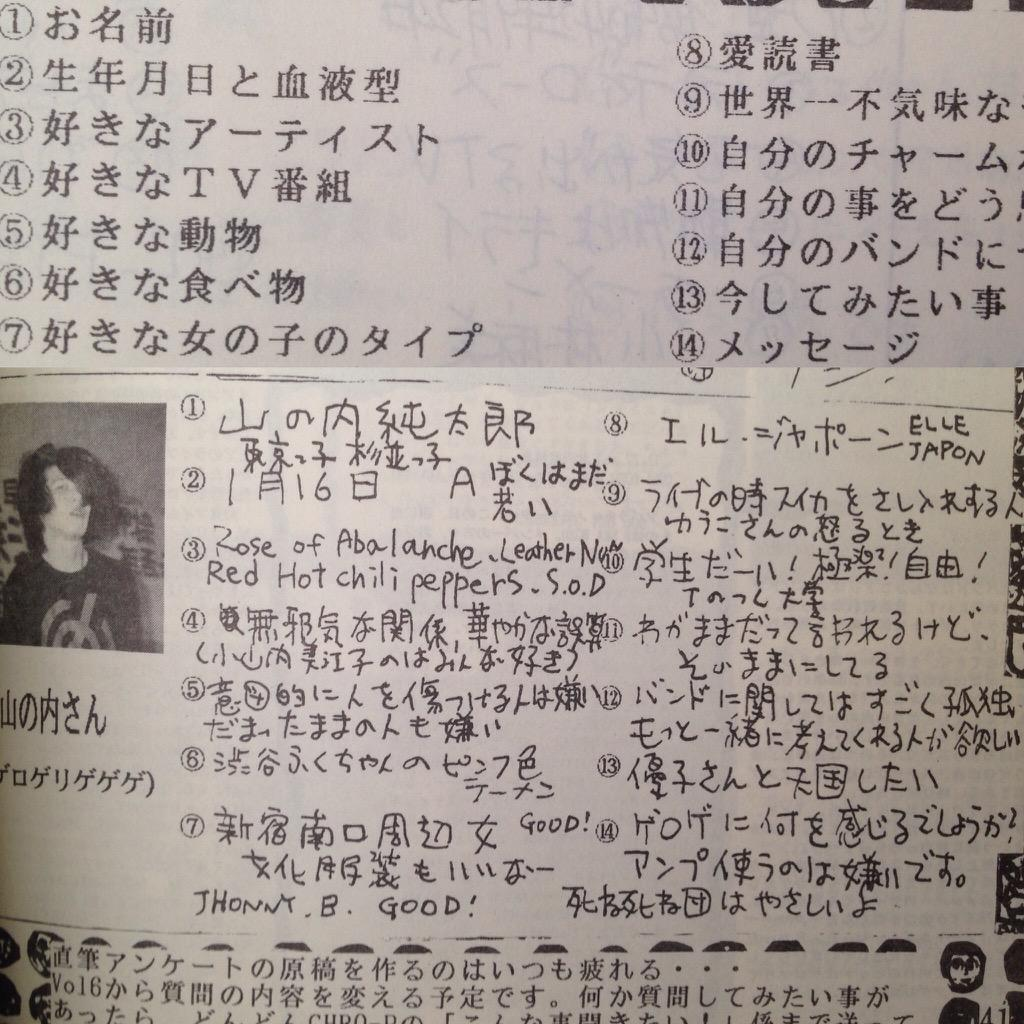 ①お名前
②生年月日と血液型
③好きなアーティスト
④好きなTV番組
⑤好きな動物
⑥好きな食べ物
⑦好きな女の子のタイプ
⑧愛読書
⑨世界一不気味な
⑩自分のチャーム
⑪自分の事をどう
⑫自分のバンドに
⑬今してみたい事
⑭メッセージ
山の内さん
ゲロゲリゲゲゲ)
① 山の内純太郎
東京っ子 杉並っ子
② 1月16日 A ぼくはまだ
若い
③ Rose of Abalanche、Leather Nun
Red Hot chili peppers、S.O.D
④ 無邪気な関係、華やかな誤算
(小山内美江子のはみんな好き)
⑤ 意図的に人を傷つける人は嫌い
だまったままの人も嫌い
⑥ 渋谷ふくちゃんのピンク色
ラーメン
⑦ 新宿南口周辺 女 GOOD!
文化服装もいいなー
JHONNY. B. GOOD!
⑧ エル・ジャポーン ELLE
JAPON
⑨ ライブの時スイカをさし入れする人
ゆうこさんの怒るとき
⑩ 学生だーい! 極楽! 自由!
Tのつく大学
⑪ わがままだって言われるけど、
そのままにしてる
⑫ バンドに関してはすごく孤独
もっと一緒に考えてくれる人が欲しい
⑬ 優子さんと天国したい
⑭ ゲロゲに何を感じるでしょうか?
アンプ使うのは嫌いです。
死ね死ね団はやさしいよ
直筆アンケートの原稿を作るのはいつも疲れる・・・
Vol6から質問の内容を変える予定です。何か質問してみたい事が
あったら、どんどんCHRO-Pの「こんな事聞きたい!」係まで送って
41